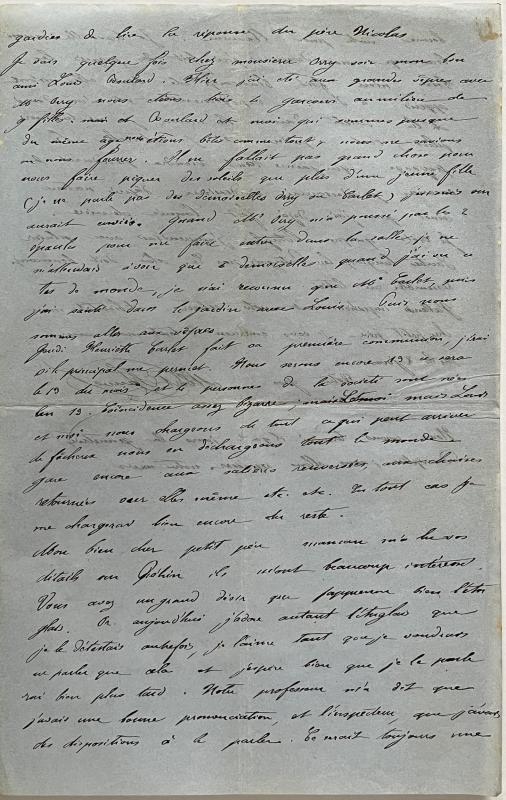 gardies de lire la réponse du père Nicolas
Je vais quelque fois chez monsieur Orry voir mon bon
ami Louis Boulard. Hier j'ai été aux grandes vêpres avec
Mme Orry nous étions trois garçons au milieu de
9 filles. moi et Boulard et moi qui sommes presque
du même âge nous étions bêtes comme tout, nous ne savions
où nous fourrer. Il ne fallait pas grand chose pour
nous faire piquer des soleils que plus d'une jeune fille
(je ne parle pas des demoiselles Orry ou Carlet) jeunes
aurait enviés. Quand Mr Orry m'a poussé par les 2
épaules pour me faire entrer dans la salle je ne
m'attendais à voir que 2 demoiselles quand j'ai vu
tas de monde, je n'ai reconnu que Mr Carlet, puis
j'ai sauté dans le jardin avec Louis. Puis nous
sommes allés aux vêpres
Jeudi Henriette Carlet fait sa première communion, j'irai
si le principal me permet. Nous serons encore 13 ce sera
le 13 du mois et les personnes de la société sont
13. Coïncidence assez bizarre, mais Louis
et moi nous chargeons de tout ce qui peut arriver
de fâcheux nous en déchargeons tout le monde
gare encore aux salières renversées, aux chaises
retournées sur elles même etc. etc. En tout cas je
me chargerai bien encore du reste.
Mon bien cher petit père maman m'a lu vos
détails sur ils m'ont beaucoup intéressé.
Vous avez un grand désir que j'apprenne bien l'An
glais. Or aujourd'hui j'adore autant l'Anglais que
je le détestais autrefois, je l'aime tant que je voudrais
ne parler que cela et j'espère bien que je le parle
rai bien plus tard. Notre professeur m'a dit que
j'avais une bonne prononciation, et l'inspecteur, que j'avais
des dispositions à le parler. Ce serait toujours une